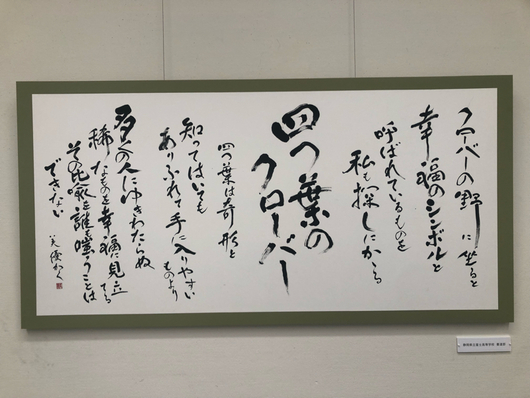 クローバーの野に坐ると
幸福のシンボルと
呼ばれているものを
私も探しにかかる
四つ葉の
クローバー
四つ葉は奇形と
知ってはいても
ありふれて手に入りやすい
ものより
多くの人にゆきわたらぬ
稀なものを幸福に見立てる
その比喩を誰も嗤うことは
できない